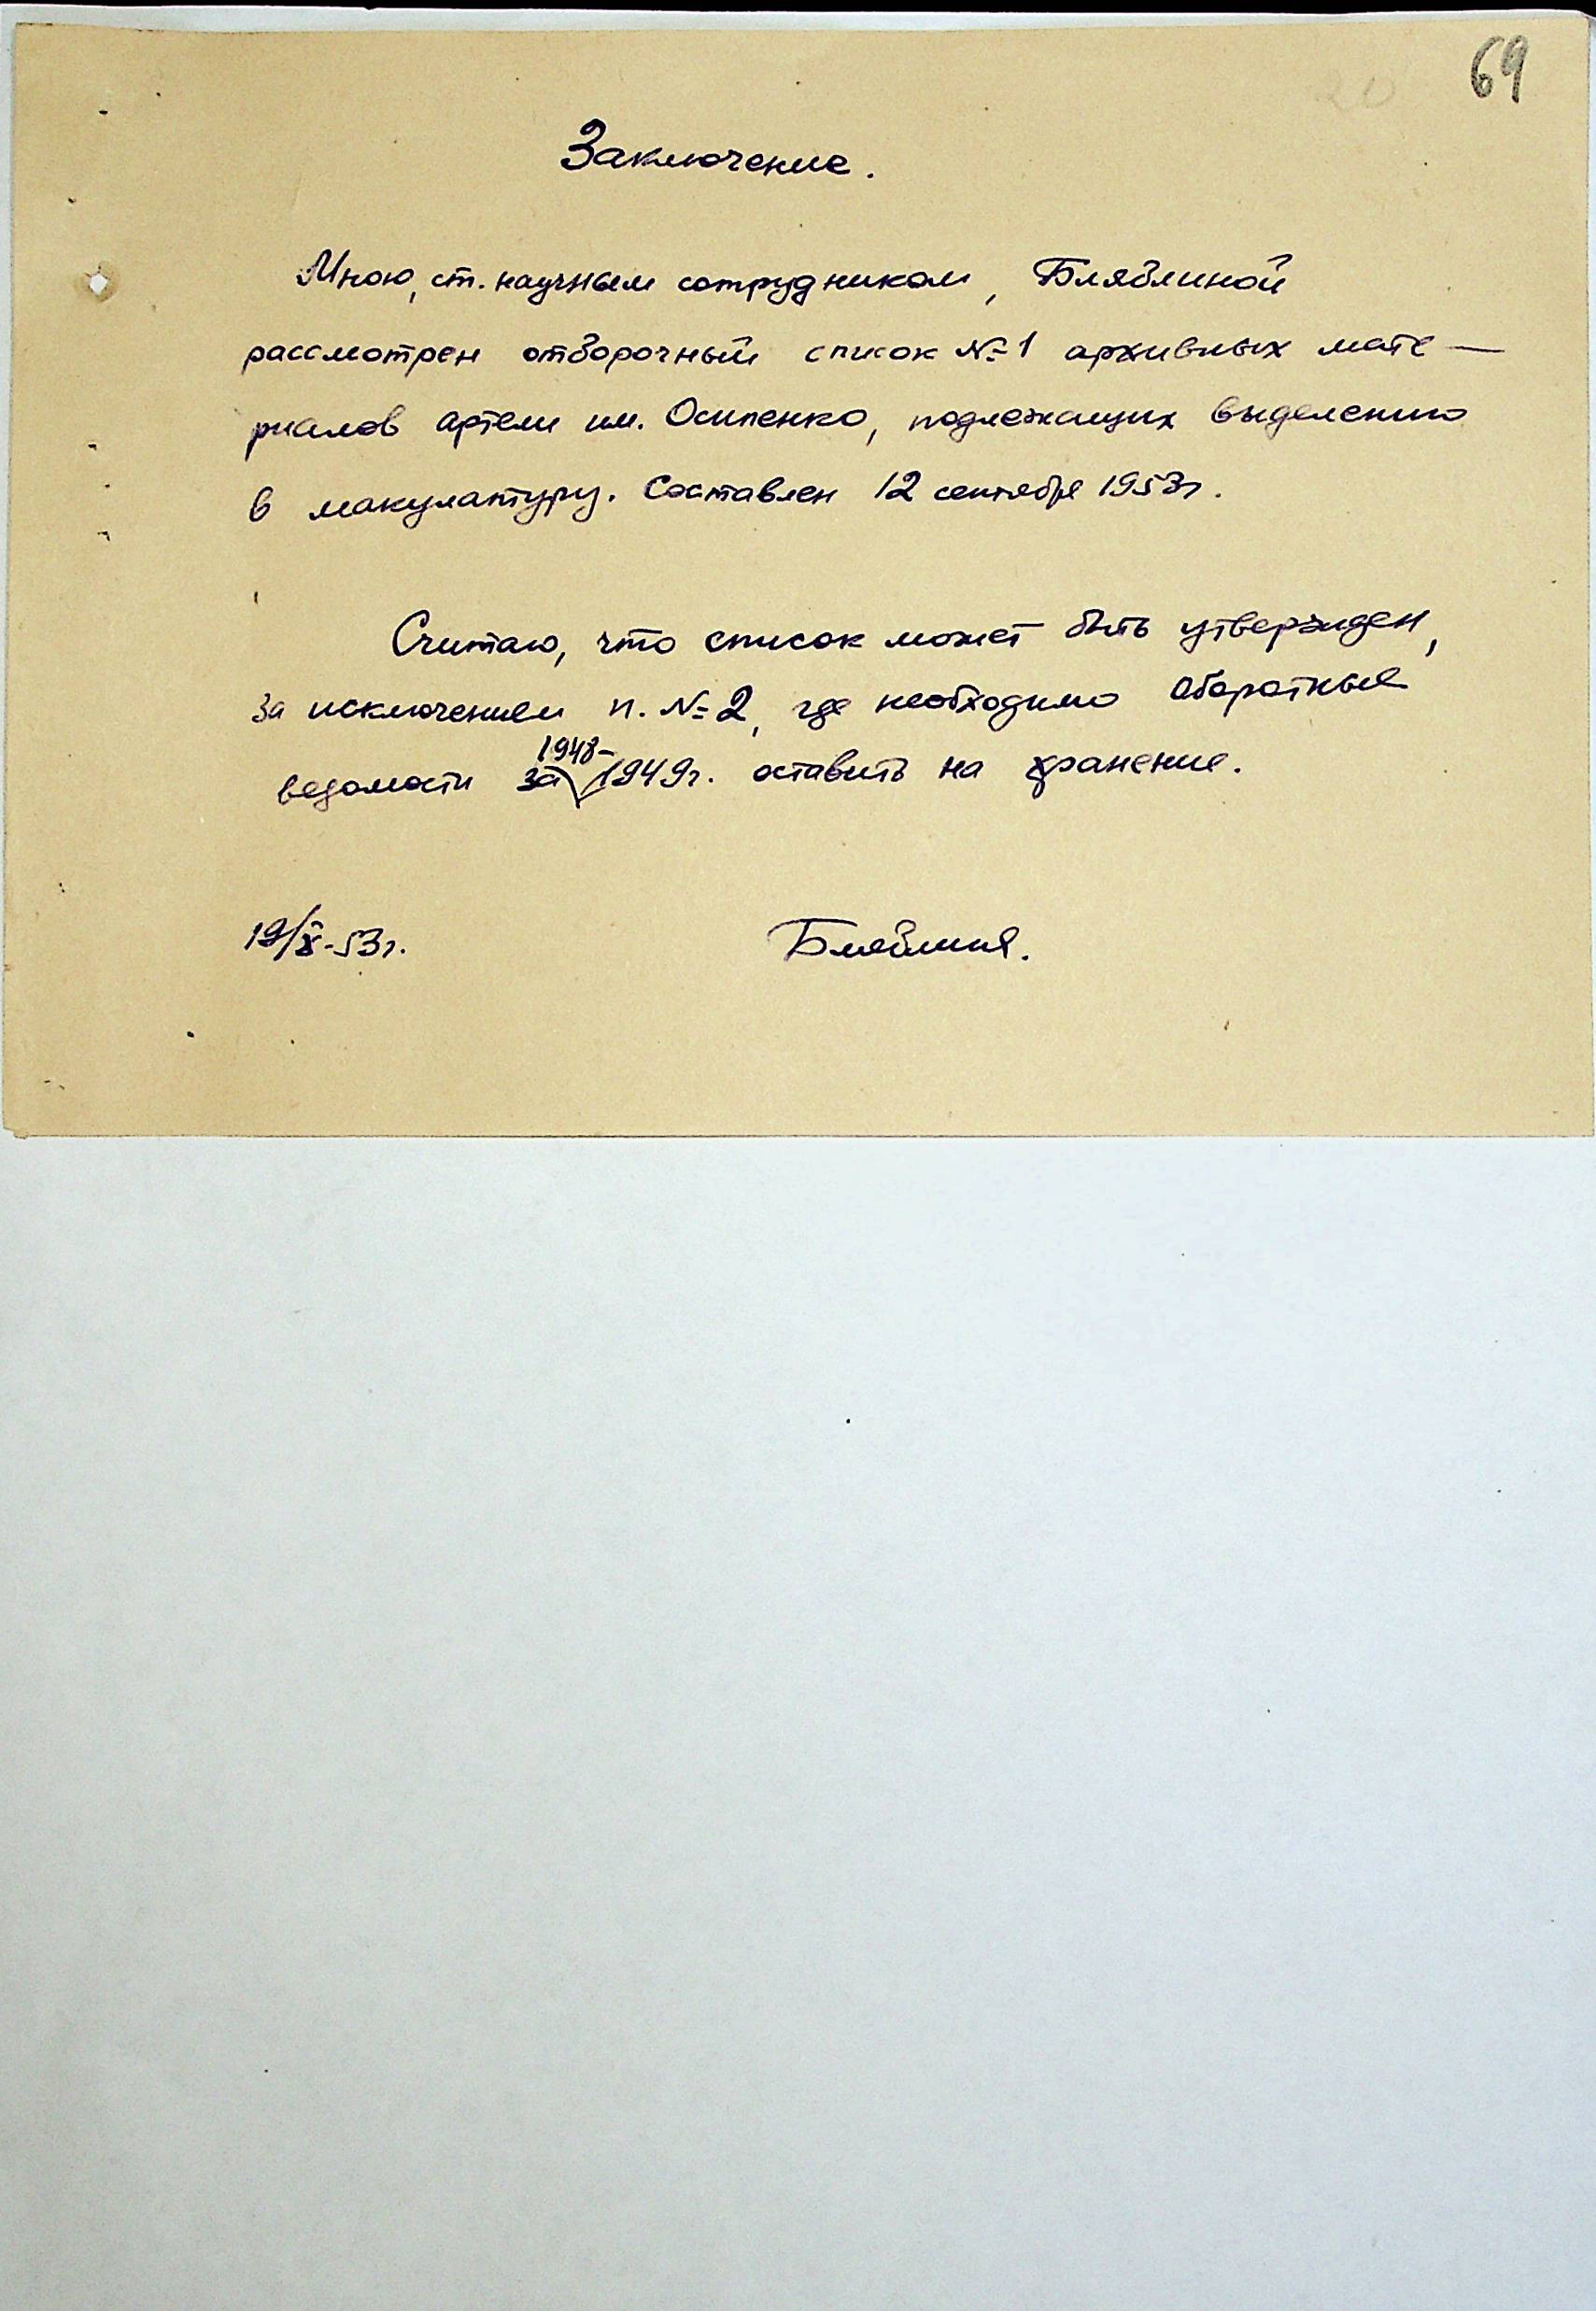 69
Заключение.
Мною, ст. научным сотрудником, Бляблиной
рассмотрен отборочный список № 1 архивных мате-
риалов артели им. Осипенко, подлежащих выделению
в макулатуру. Составлен 12 сентября 1953г.
Считаю, что список может быть утвержден,
за исключением п. № 2, где необходимо оборотные
ведомости за 1948-1949г. оставить на хранение.
19/X-53г. Бляблина.